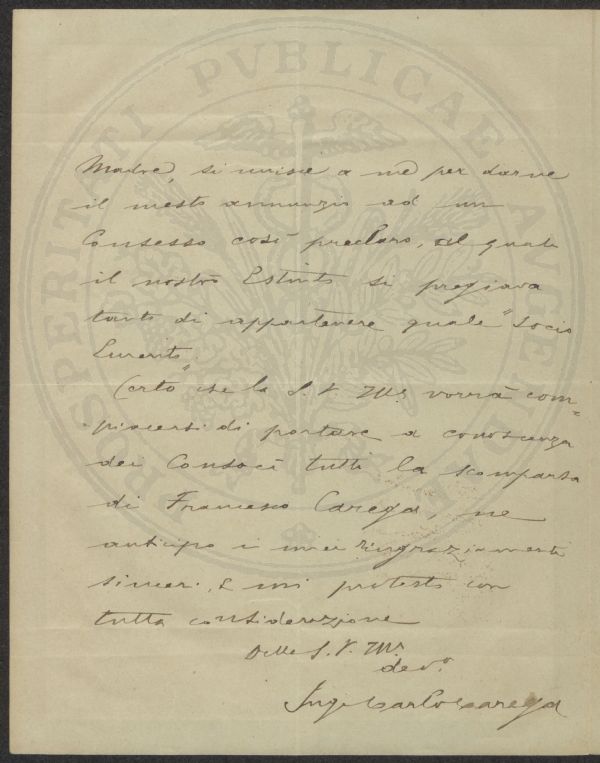 PROSPERITATI PVBLICAE AVGENDAE
Madre, si unisce a me per darne
il mesto annunzio ad un
Consesso così preclaro, al quale
il nostro Estinto si pregiava
tanto di appartenere quale "Socio
Emerito"
Certo che la S. V. Ill. vorrà com=
piacersi di portare a conoscenza
dei Consoci tutti la scomparsa
di Francesco Carega, ne
anticipo i miei ringraziamenti
sinceri, e mi protesto con
tutta considerazione
Della S. V. Ill.
dev.o
Ing. Carlo Carega